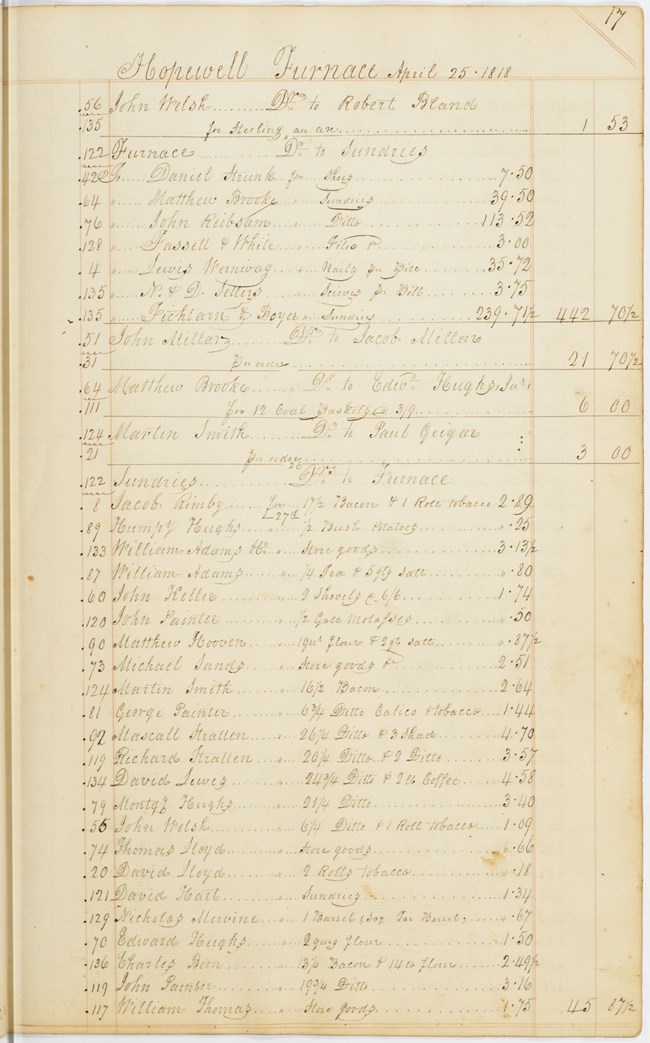 17
Hopewell Furnace April 25 · 1818
.56 John Welsh Dr. to Robert Bland
.135 for Sterling an axe 1 53
.122 Furnace Dr. to Sundries
.422 To Daniel Strunk for Shoes 7.50
64 " Matthew Brooke " Sundries 39.50
.76 " John Reibsam " Ditto 113.52
.128 " Fassell & White " Files &c 3.00
.4 " Lewis Wernwag " Nails pr Bill 35.72
.135 " N. & D. Sellers " Seives pr Bill 3.75
.135 " Fichtorn & Boyer " Sundries 239.71½ 442 70½
.51 John Millar Dr. to Jacob Millar
.31 pr order 21 70½
.64 Matthew Brooke Dr. to Edwd. Hughs Jur.
.111 for 12 Coal Baskets @ 3/9 6 00
.124 Martin Smith Dr. to Paul Geigar
.21 pr order 3 00
.122 Sundries Drs. to Furnace
.8 Jacob Rimby for 17½ Bacon & 1 Roll tobacco 2.89
27th
.89 Humpy Hughs " ½ Bush Potatoes .25
.133 William Adams " Store goods 3.13½
.87 William Adams " ¼ Tea & 5 qts Salt .80
.60 John Keller " 2 Shovels @ 6/6 1.74
.120 John Painter " ½ Gall Molasses .50
.90 Matthew Hooven " 19 flour & 2 qts Salt .87½
.73 Michael Sands " Store goods &c 2.51
.124 Martin Smith " 16½ Bacon 2.64
.81 George Painter " 6¾ Ditto Calico & tobacco 1.44
.92 Mascall Strallen " 26¼ Ditto & 3 Shad 4.70
.119 Richard Strallen " 20¼ Ditto & 2 Ditto 3.57
.134 David Lewis " 24¾ Ditto & 2 lb Coffee 4.58
.79 Montgy Hughs " 21¼ Ditto 3.40
.56 John Welsh " 6¼ Ditto & 1 Roll tobacco 1.09
.74 Thomas Lloyd " Store goods .66
.20 David Lloyd " 2 Rolls tobacco .18
.121 David Hart " Sundries 1.34
.129 Nicholas Mervine " 1 Barrel (say Tar Barrel) .67
.70 Edward Hughs " 2 qrs flour 1.50
.136 Charles Boon " 13¼ Bacon & 14 lb flour 2.49½
.119 John Painter " 19¾ Ditto 3.16
.117 William Thomas " Store goods 1.75 45 87½